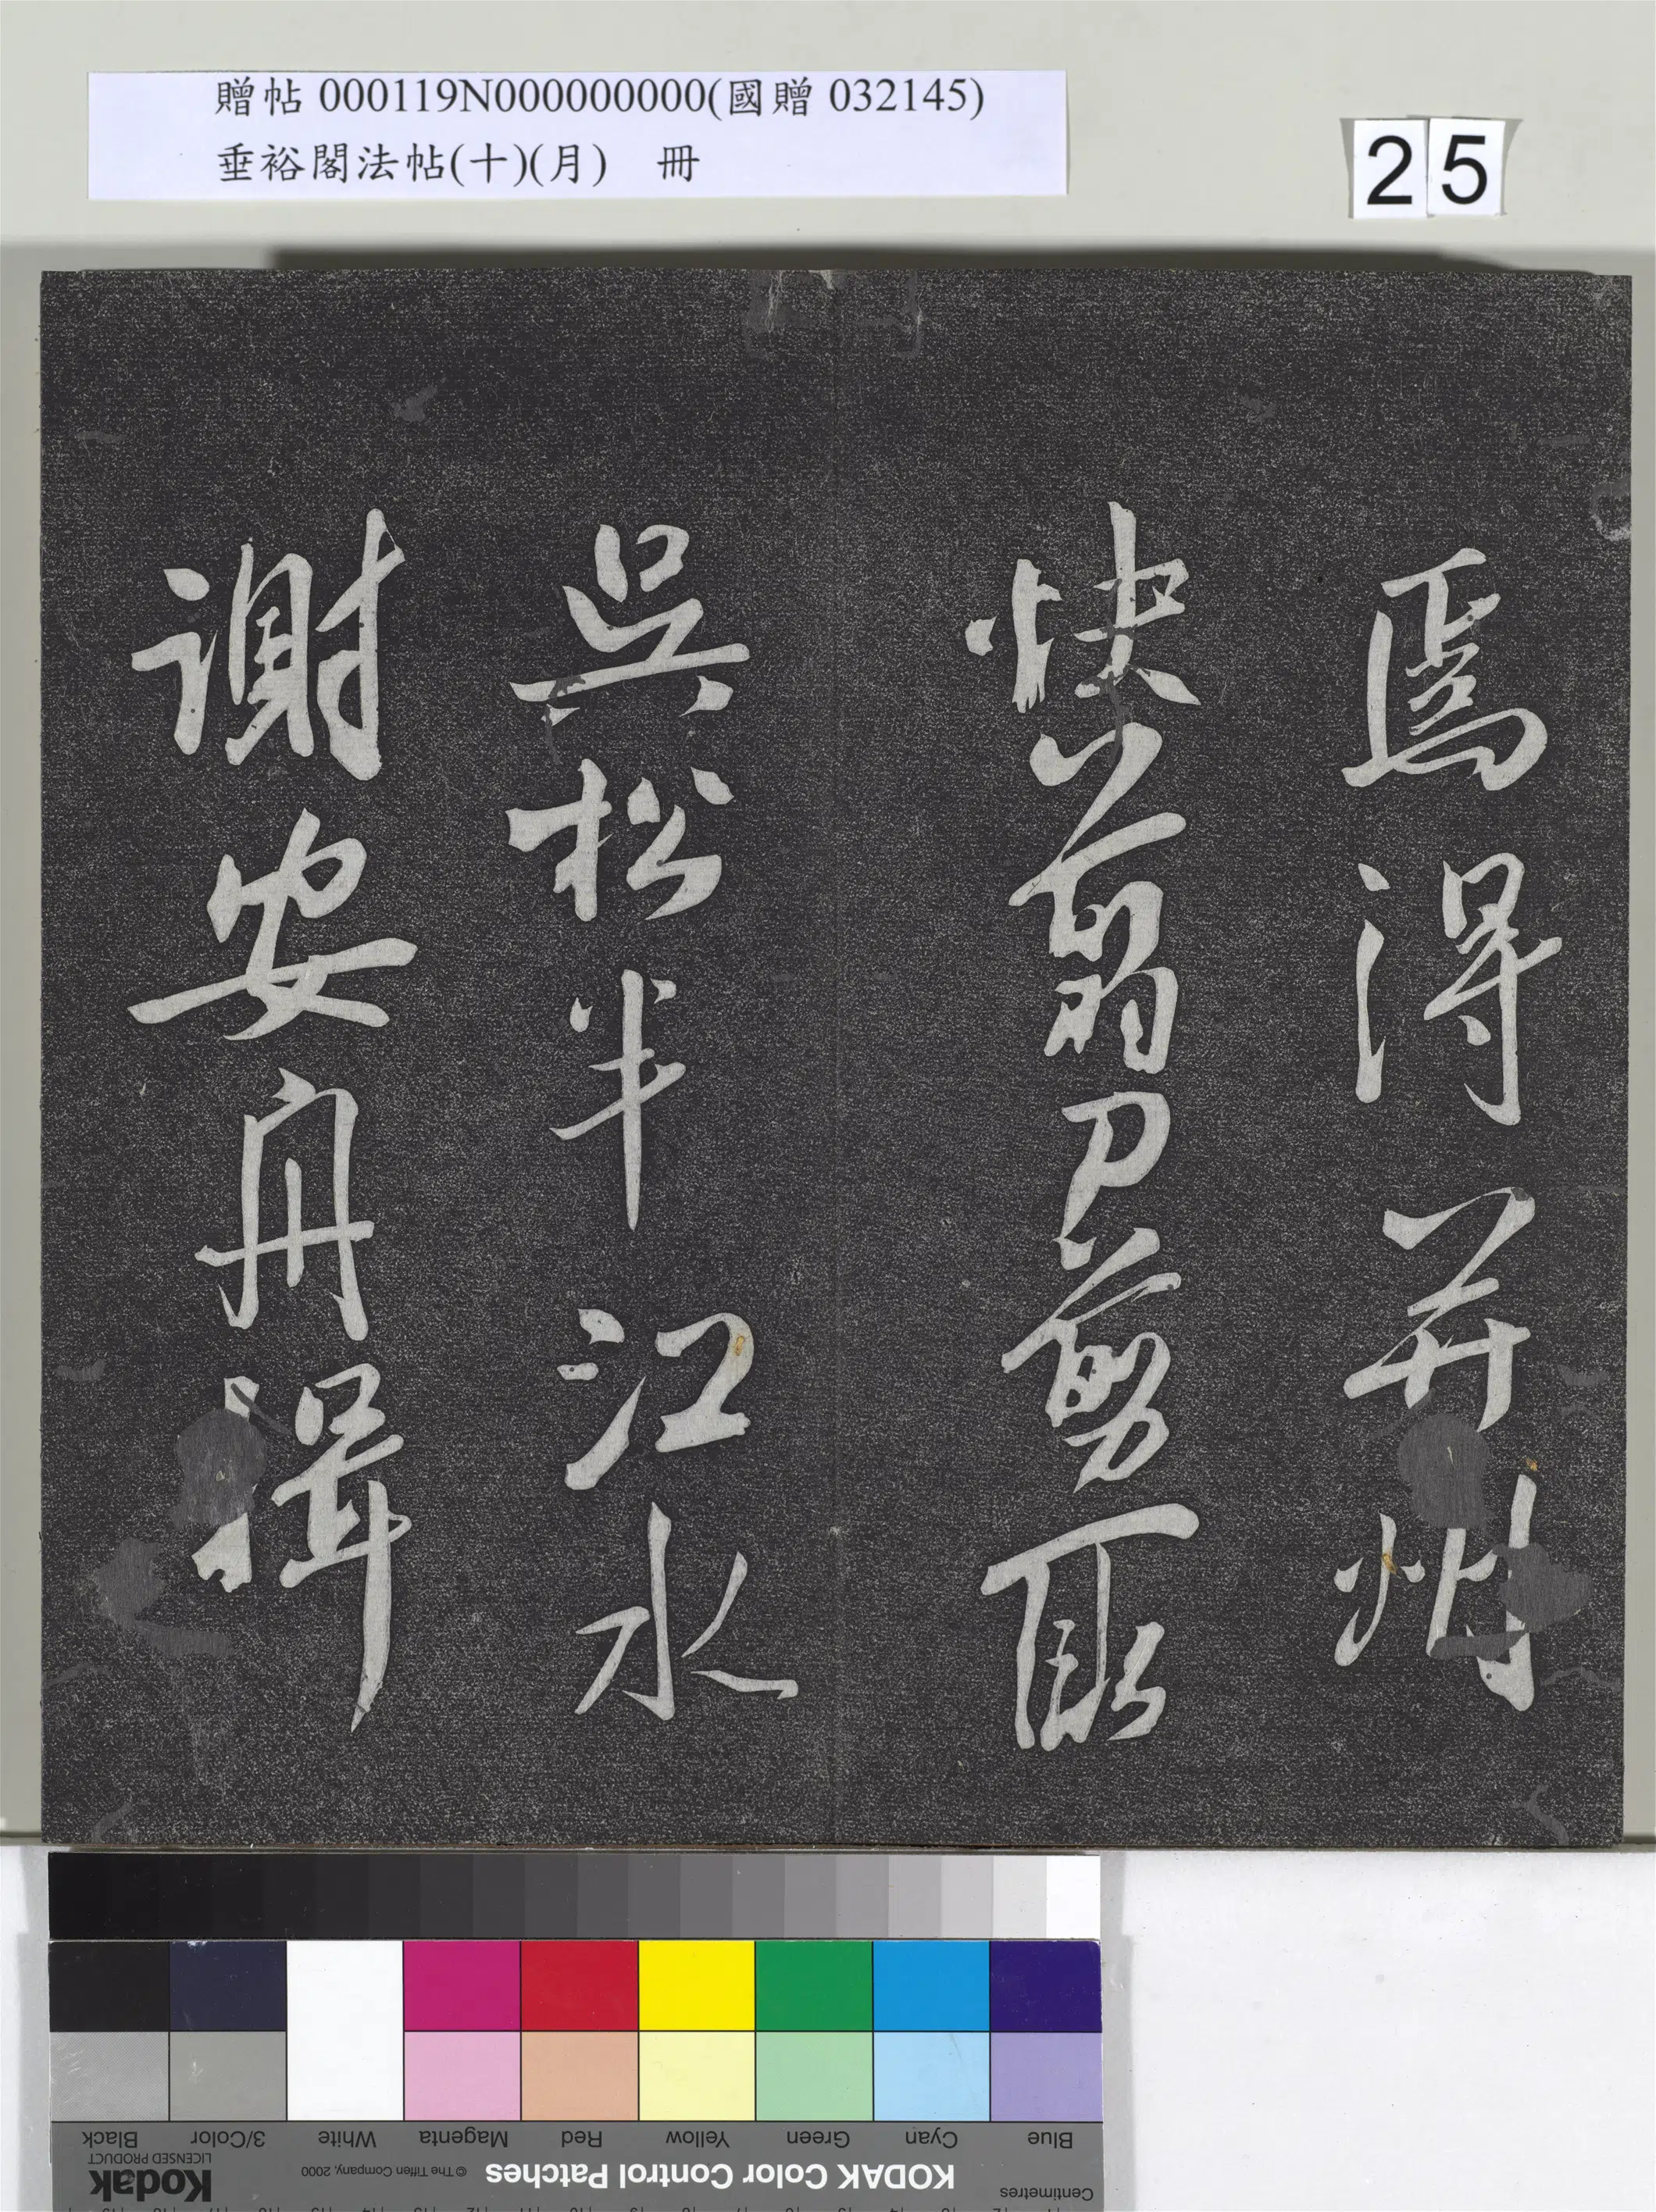 贈帖 000119N000000000(國贈 032145)
垂裕閣法帖(十)(月) 冊
25
焉得并州
快翦刀剪取
吳松半江水
謝安舟楫
Black 3/Color White Magenta Red Yellow Green Cyan Blue
Kodak
LICENSED PRODUCT
© The Tiffen Company, 2000
KODAK Color Control Patches
Centimetres